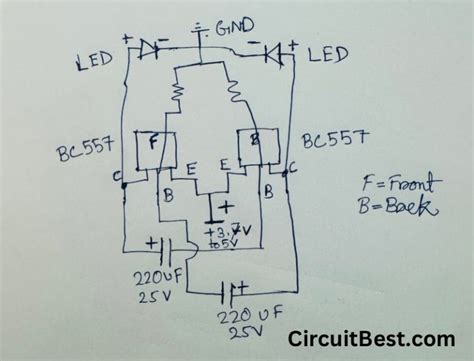 GND
+ - - +
LED LED
BC557 F B BC557
C B E E B C
F=Front
B=Back
+
+3.7V
to 5V
+
220UF
25V
+
220UF
25V
CircuitBest.com